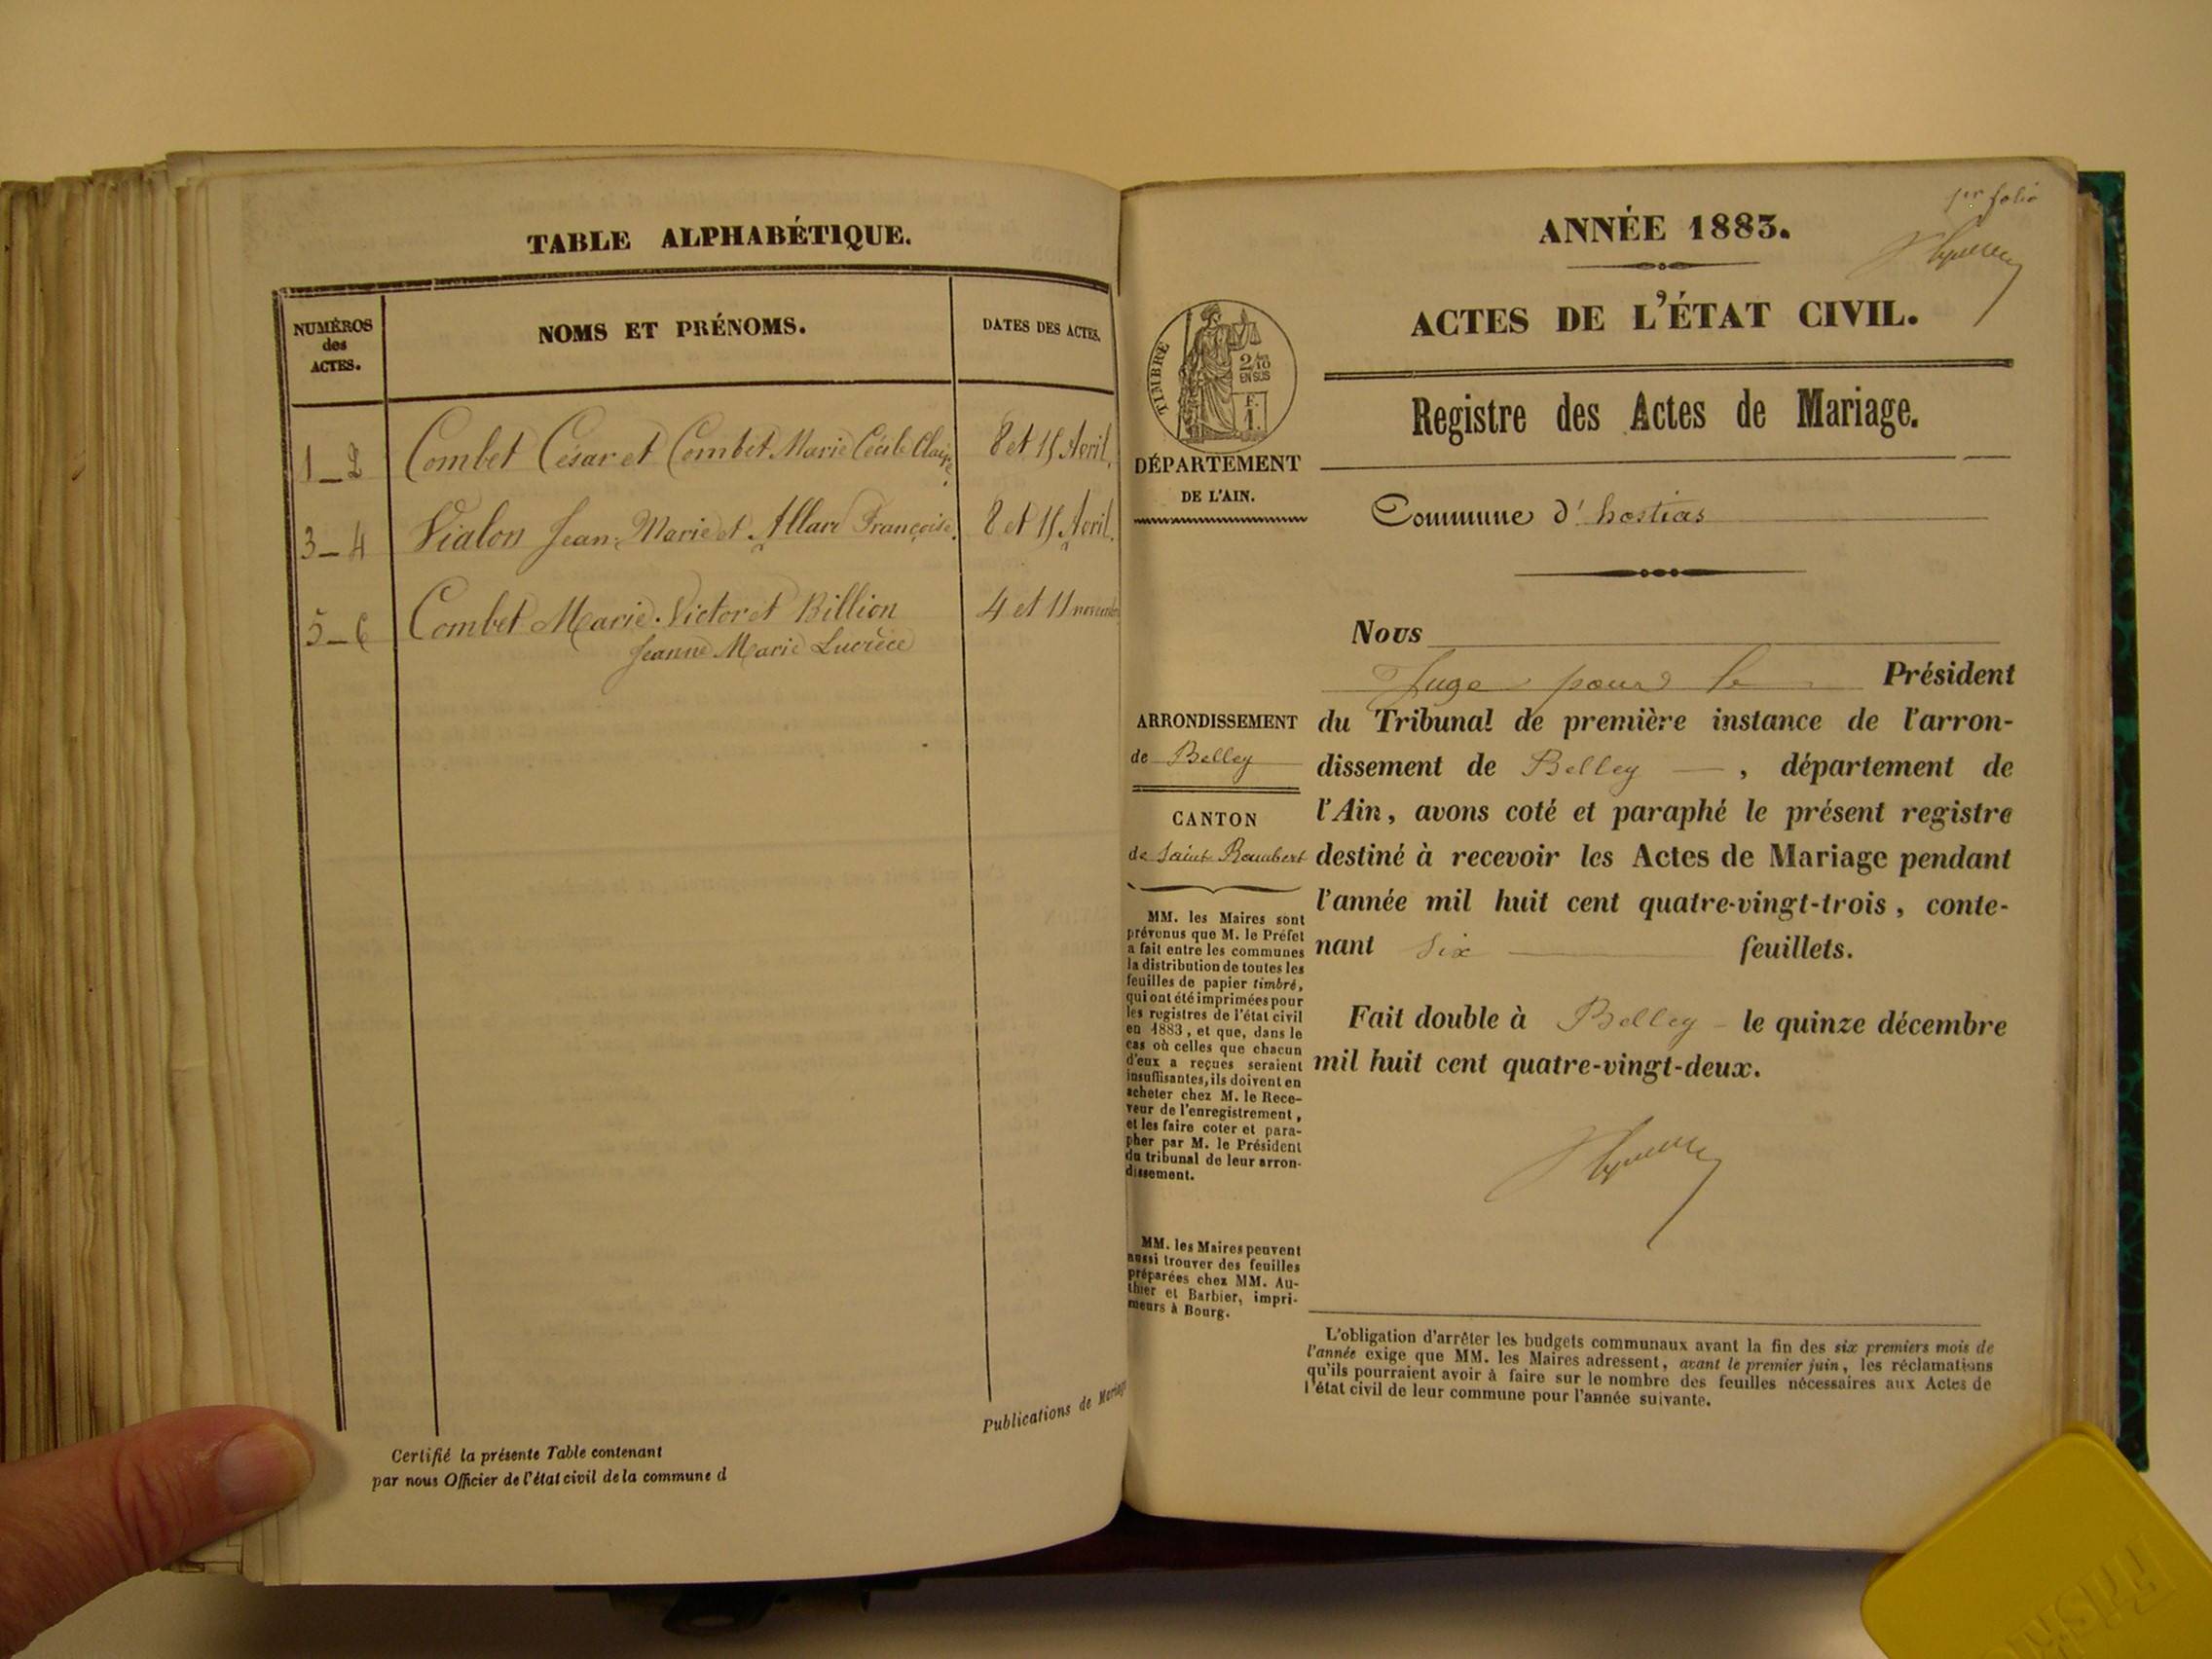 TABLE ALPHABÉTIQUE.
NUMÉROS
des
ACTES.
NOMS ET PRÉNOMS.
DATES DES ACTES.
1_2 Combet César et Combet Marie Cécile Claire. 8 et 15 Avril.
3_4 Vialon Jean-Marie et Allard Françoise. 8 et 15 Avril.
5_6 Combet Marie-Victor et Billion 4 et 11 novembre
Jeanne Marie Lucrèce
Publications de Mariage
Certifié la présente Table contenant
par nous Officier de l'état civil de la commune d
1er folio
ANNÉE 1883.
ACTES DE L'ÉTAT CIVIL.
TIMBRE
2/10
EN SUS
F.
1.
Registre des Actes de Mariage.
DÉPARTEMENT
DE L'AIN.
Commune d'hostias
Nous
Juge pour le Président
du Tribunal de première instance de l'arron-
dissement de Belley —, département de
l'Ain, avons coté et paraphé le présent registre
destiné à recevoir les Actes de Mariage pendant
l'année mil huit cent quatre-vingt-trois, conte-
nant six feuillets.
Fait double à Belley - le quinze décembre
mil huit cent quatre-vingt-deux.
ARRONDISSEMENT
de Belley
CANTON
de Saint Rambert
MM. les Maires sont
prévenus que M. le Préfet
a fait entre les communes
la distribution de toutes les
feuilles de papier timbré,
qui ont été imprimées pour
les registres de l'état civil
en 1883, et que, dans le
cas où celles que chacun
d'eux a reçues seraient
insuffisantes, ils doivent en
acheter chez M. le Rece-
veur de l'enregistrement,
et les faire coter et para-
pher par M. le Président
du tribunal de leur arron-
dissement.
MM. les Maires peuvent
aussi trouver des feuilles
préparées chez MM. Au-
thier et Barbier, impri-
meurs à Bourg.
L'obligation d'arrêter les budgets communaux avant la fin des six premiers mois de
l'année exige que MM. les Maires adressent, avant le premier juin, les réclamations
qu'ils pourraient avoir à faire sur le nombre des feuilles nécessaires aux Actes de
l'état civil de leur commune pour l'année suivante.